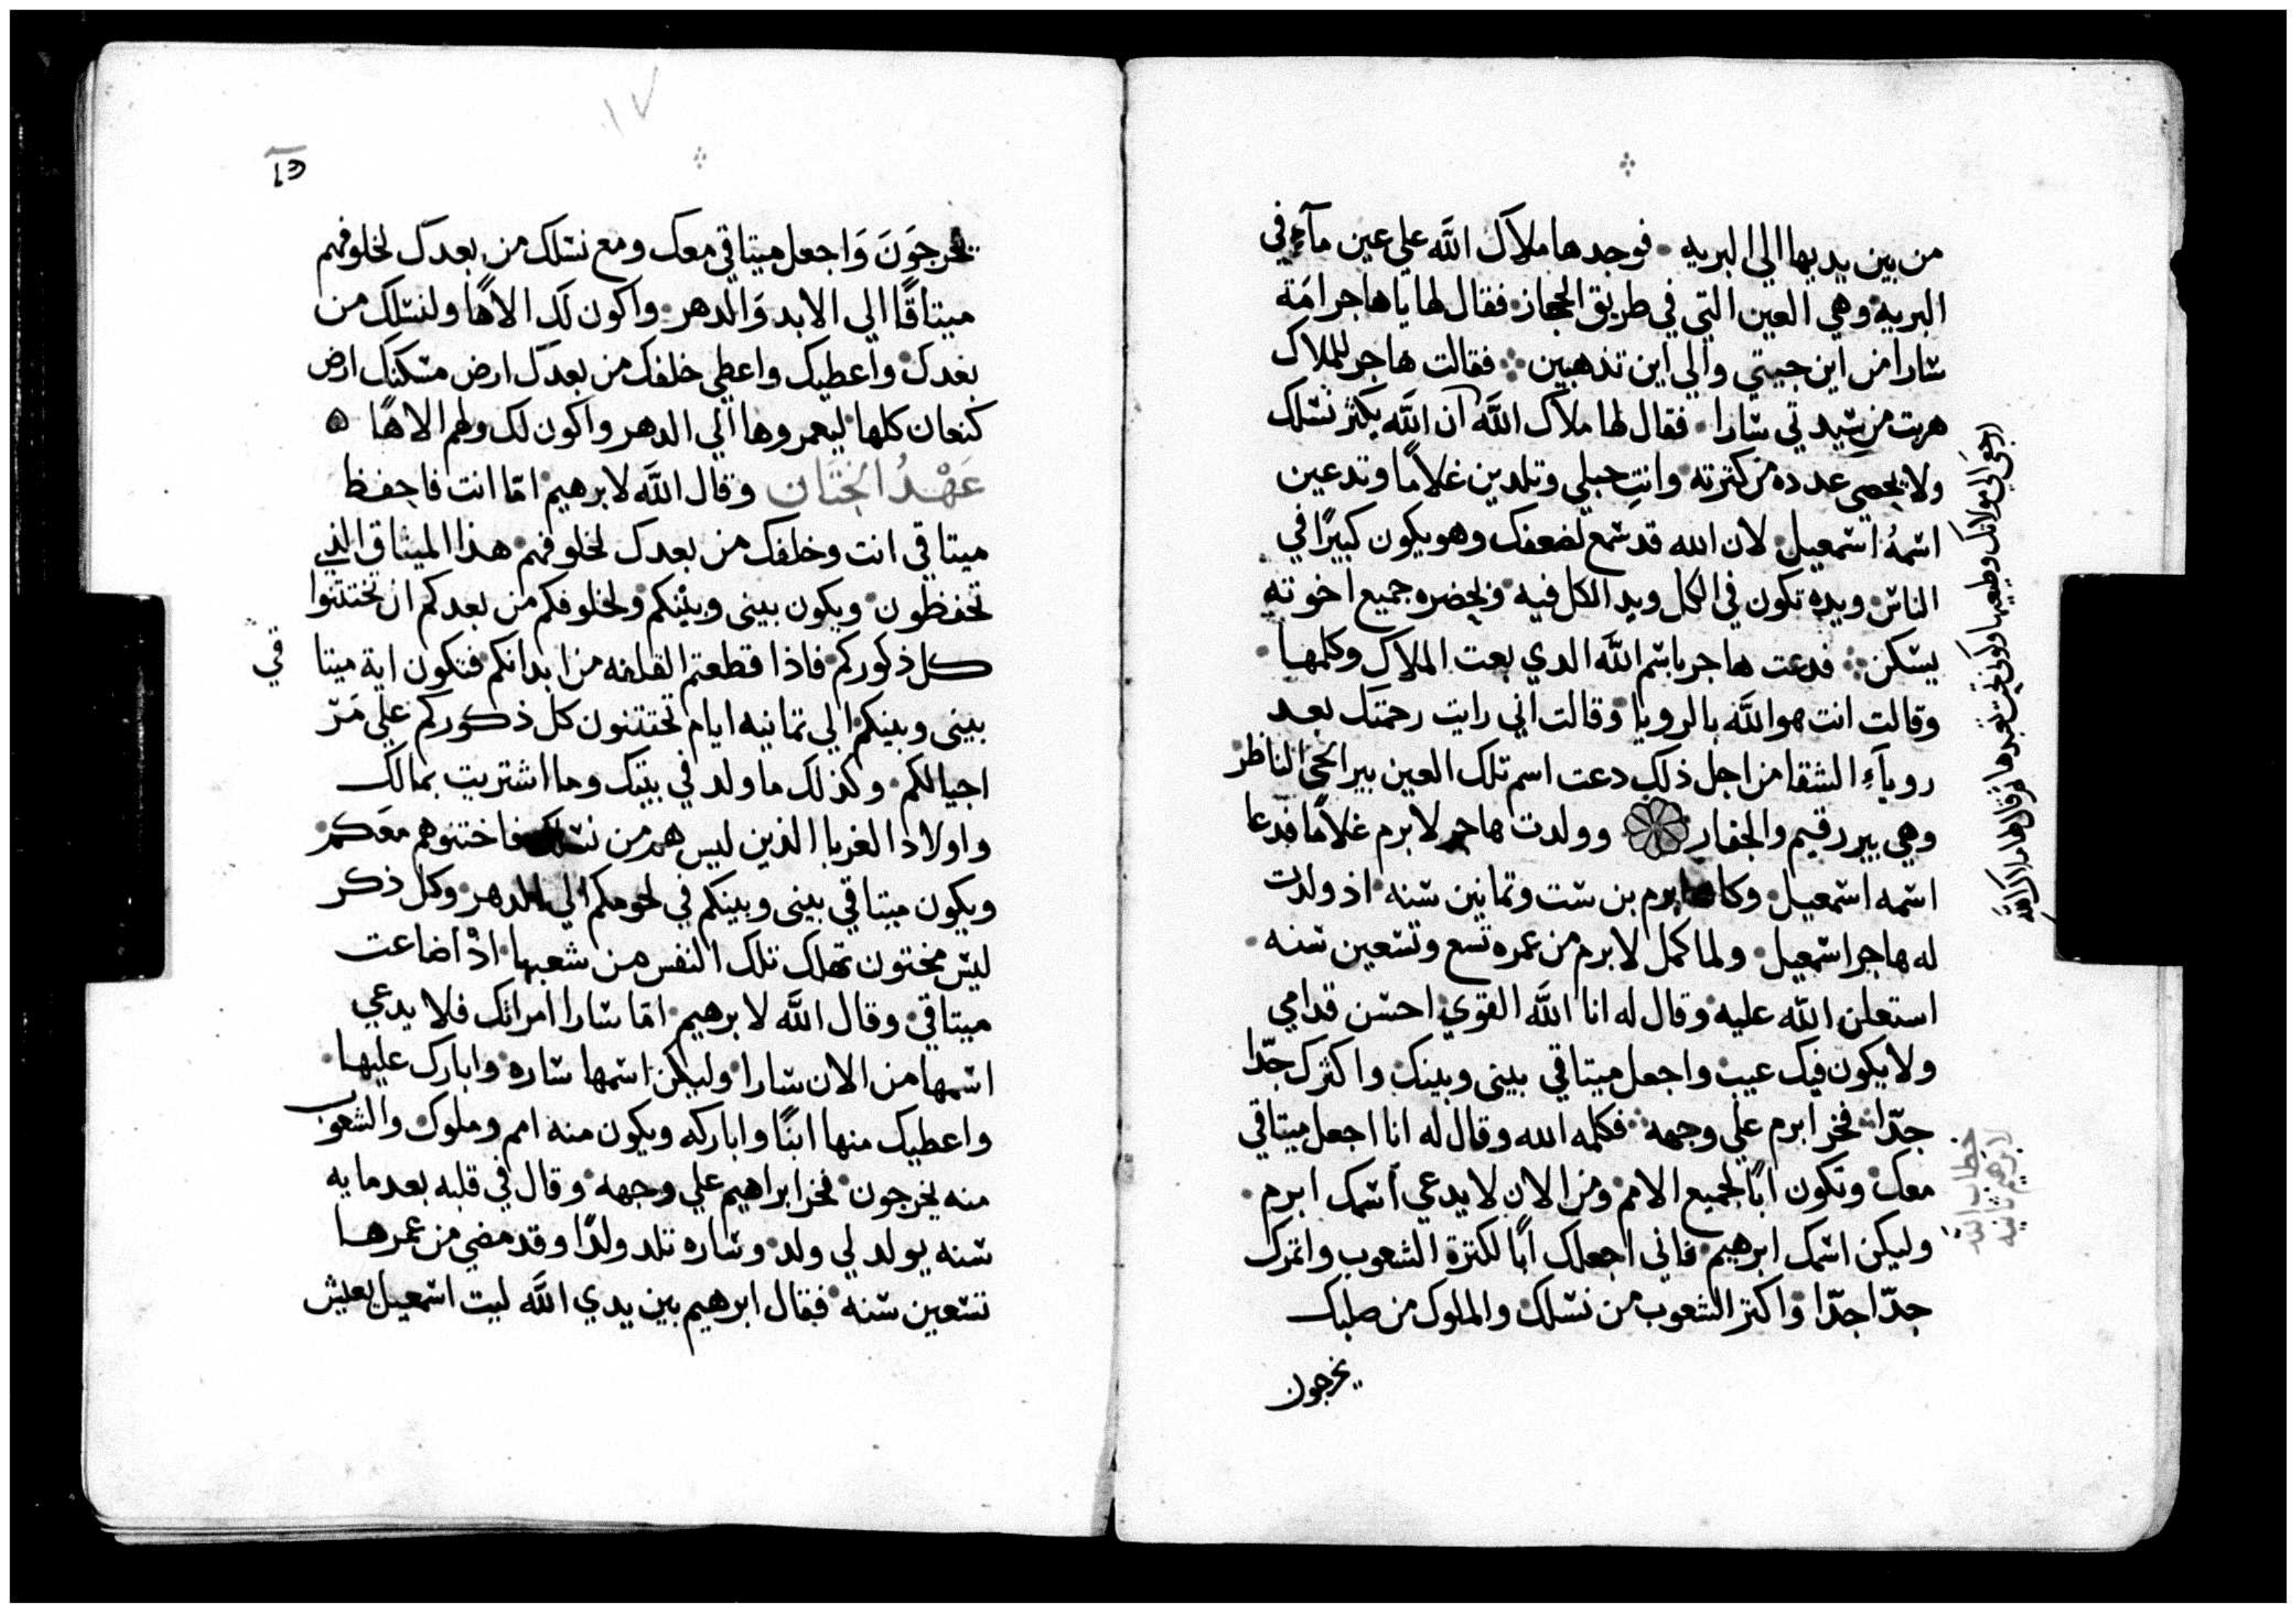 من بين يديها الى البريه فوجدها ملاك الله علي عين مآء في
البريه وهي العين التي في طريق الحجاز فقال لها يا هاجر امة
سارا من اين جيتي والي اين تذهبين فقالت هاجر للملاك
هربت من سيدتي سارا فقال لها ملاك الله ان الله يكثر نسلك
ولا يحصى عدده من كثرته وانتِ حبلي وتلدين غلامًا وتدعين
اسمهُ اسمعيل لان الله قد سمع لضعفك وهو يكون كبيرًا في
الناس ويده تكون في الكل ويد الكل فيه وبحضره جميع اخوته
يسكن فدعت هاجر باسم الله الدي بعت الملاك وكلمها
وقالت انت هو الله بالرويا وقالت اني رايت رحمتك بعد
روياء الشقا من اجل ذلك دعت اسم تلك العين بير الحي الناظر
وهي بير رقيم والجفار وولدت هاجر لابرم غلامًا فدعا
اسمه اسمعيل وكان ابرم بن ست وتمانين سنه اذ ولدت
له هاجر اسمعيل ولما كمل لابرم من عمره تسع وتسعين سنه
استعلن الله عليه وقال له انا الله القوي احسن قدامي
ولا يكون فيك عيب واجعل ميتاقي بيني وبينك واكثرك جدّا
جدّا فخر ابرم علي وجهه فكلمه الله وقال له انا اجعل ميتاقي
معك وتكون ابًا لجميع الامم ومن الان لا يدعي اسمك ابرم
وليكن اسمك ابرهيم فاني اجعلك ابًا لكترة الشعوب واثمرك
جدّا جدّا واكتر الشعوب من نسلك والملوك من صلبك
يخرجون
ارجعي الي مولاتك واطيعيها
خطاب الله
لابرهيم ثانيه
١٧
يخرجَوَنَ وَاجعل ميتاقي معك ومع نسلك من بعدك لخلوفهم
ميتاقًا الي الابد وَالدهر واكون لك الاهًا ولنسلك من
بعدك واعطيك واعطي خلفك من بعدك ارض مسكنك ارض
كنعان كلها ليعمروها الي الدهر واكون لك ولهم الاهًا ه
عَهْدُ الخِتَان وقال الله لابرهيم امّا انت فاحفظ
ميتاقي انت وخلفك من بعدك لخلوفهم هذا الميثاق الذي
تحفظون ويكون بيني وبينكم ولخلوفكم من بعدكم ان تختتنوا
كل ذكوركم فاذا قطعتم القلفه من ابدانكم فتكون اية ميتاقي
بيني وبينكم الي تمانيه ايام تختتنون كل ذكوركم علي مَرّ
اجيالكم وكذلك ما ولد في بيتك وما اشتريت بمالك
واولاد الغربا الذين ليس هم من نسلك فاختنوهم معكم
ويكون ميتاقي بيني وبينكم في لحومكم الي الدهر وكل ذكر
ليس مختون تهلك تلك النفس من شعبها اذْ اضاعت
ميتاقي وقال الله لابرهيم امّا سارا امراتك فلا يدعي
اسمها من الان سارا وليكن اسمها ساره وابارك عليها
واعطيك منها ابنًا واباركه ويكون منه امم وملوك والشعوب
منه يخرجون فخر ابراهيم علي وجهه وقال في قلبه بعد مايه
سنه يولد لي ولد وساره تلد ولدًا وقد مضي من عمرها
تسعين سنه فقال ابرهيم بين يدي الله ليت اسمعيل يعيش